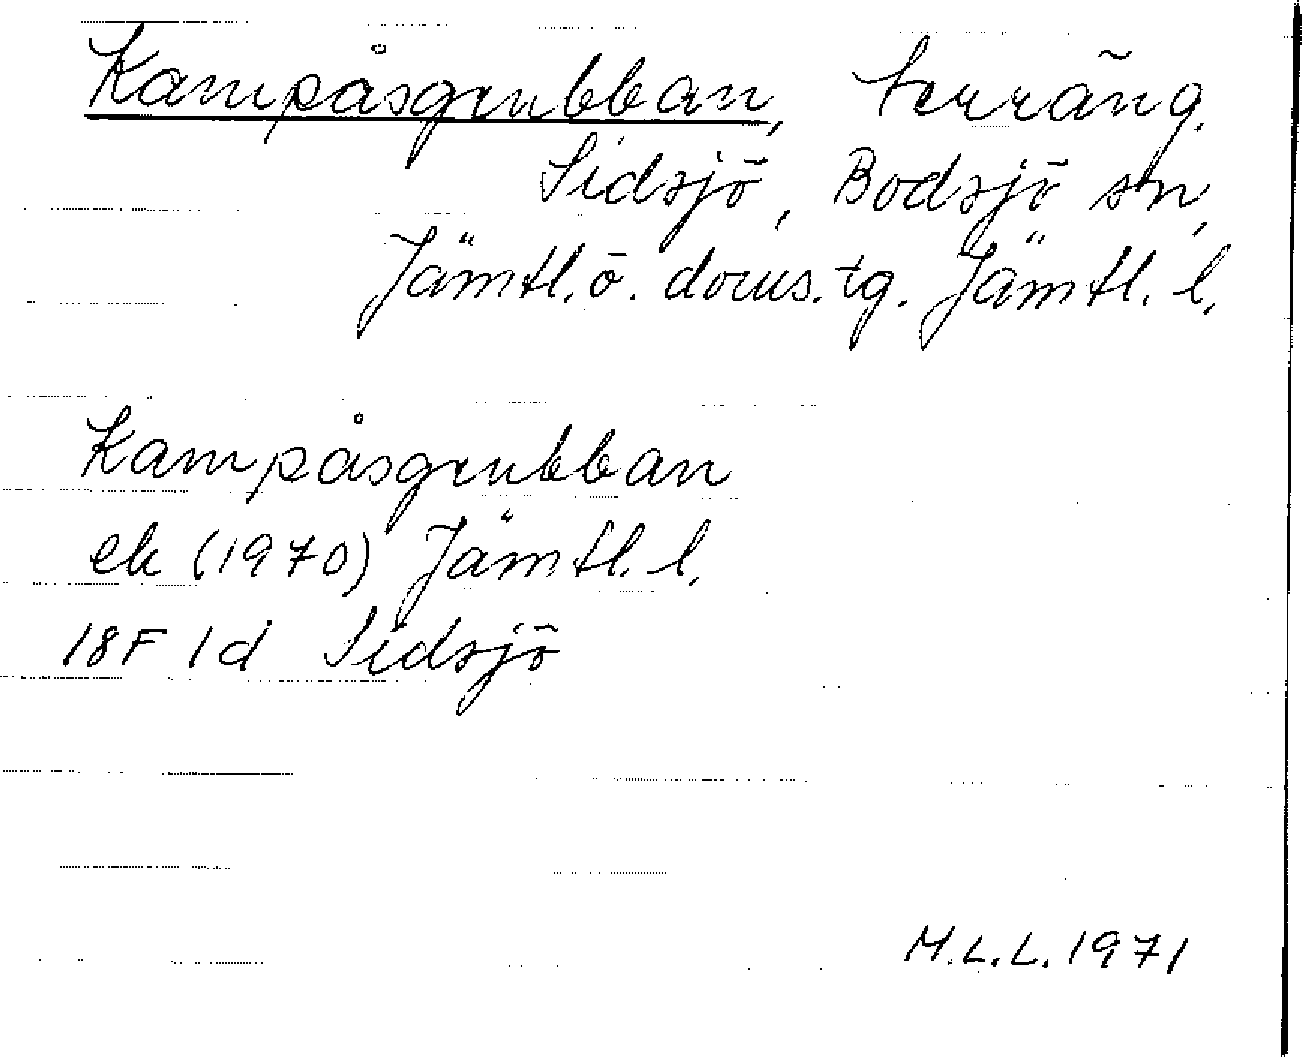 Kampåsgrubban, terräng.
Sidsjö, Bodsjö sn,
Jämtl. ö. doms. tg. Jämtl. l.
Kampåsgrubban
ek (1970) Jämtl. l.
18F 1d Sidsjö
M.L.L. 1971